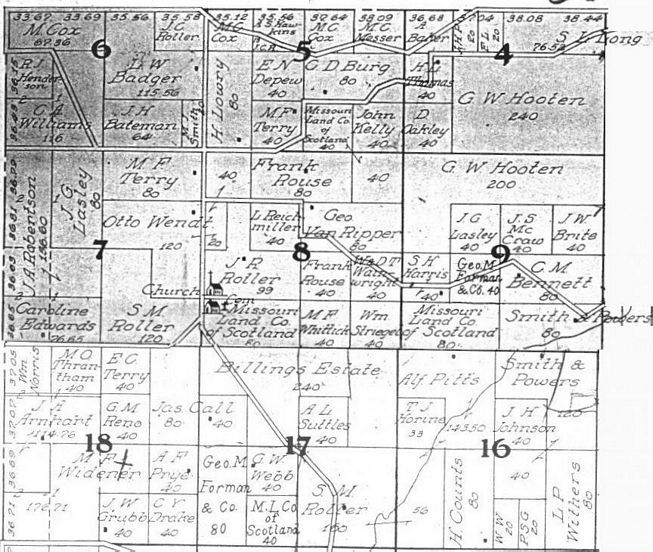 33.67 33.69 35.56 35.58 35.12 35.56 37.64 38.09 36.68 37.04 38.08 38.44
M. Cox
67.36
6
J.C.
Roller
M.C.
Cox
5
M.C.
Cox
M.C.
Messer
A
Baker
E L
20
4
76.52
S L Long
R J
Hender-
son
L W
Badger
115.56
H Lowry
80
E N
Depew
40
G D Burg
80
H
Thomas
40
G W Hooten
240
C A
Williams
J H
Bateman
64
M
Smith
M F
Terry
40
Missouri
Land Co
of
Scotland
40
John
Kelly
40
D
Oakley
40
M F
Terry
80
40
Frank
Rouse
80
40
G W Hooten
200
J A Robertson
J. G.
Lasley
80
7
Otto Wendt
120
20
L Reich
miller
40
8
Geo
Van Ripper
80
J G
Lasley
40
J S
Mc
Craw
40
J W
Brite
40
9
J R
Roller
99
Frank
Rouse
40
W & D T
Wain
wright
40
S H
Harris
40
Geo. M
Forman
& Co. 40
C M
Bennett
80
Church
Cem
Caroline
Edwards
76.65
S M
Roller
120
Missouri
Land Co
of Scotland
80
M F
Whitlick
40
Wm
Striegel
40
Missouri
Land Co
of Scotland
80
Smith & Powers
80
37.05
Wm
Norris
M O
Thran
tham
40
E C
Terry
40
Billings Estate
240
Alf Pitts
143.50
Smith &
Powers
120
37.07
J A
Arnhart
G M
Reno
40
Jas Call
80
40
A L
Suttles
40
T J
Horine
33
J H
Johnson
40
18
17
16
36.69
M F
Widener
A F
Prye
40
Geo. M.
Forman
& Co.
80
G W
Webb
40
S M
Roller
160
H Counts
80
40
L P
Withers
80
36.71
J. W.
Grubb
40
C Y
Drake
40
M. L. Co
of
Scotland
40
56
W W
20
P S G
20